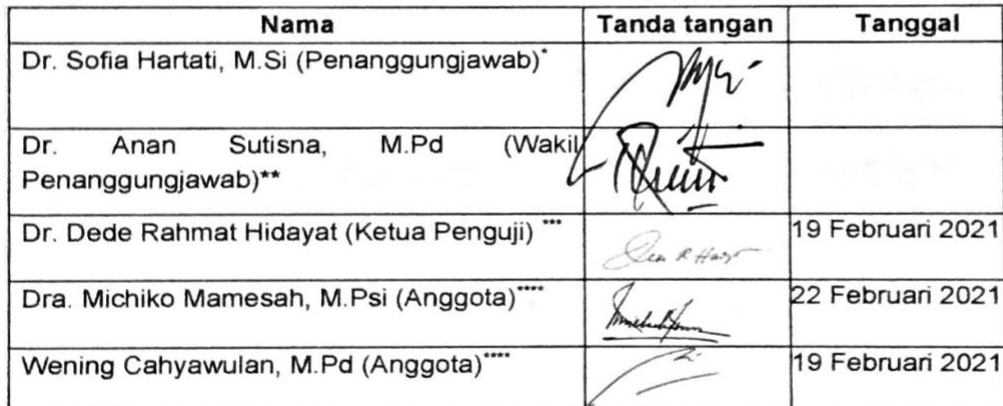 Nama Tanda tangan Tanggal
Dr. Sofia Hartati, M.Si (Penanggungjawab)*
Dr. Anan Sutisna, M.Pd (Wakil
Penanggungjawab)**
Dr. Dede Rahmat Hidayat (Ketua Penguji) *** 19 Februari 2021
Dra. Michiko Mamesah, M.Psi (Anggota)**** 22 Februari 2021
Wening Cahyawulan, M.Pd (Anggota)**** 19 Februari 2021